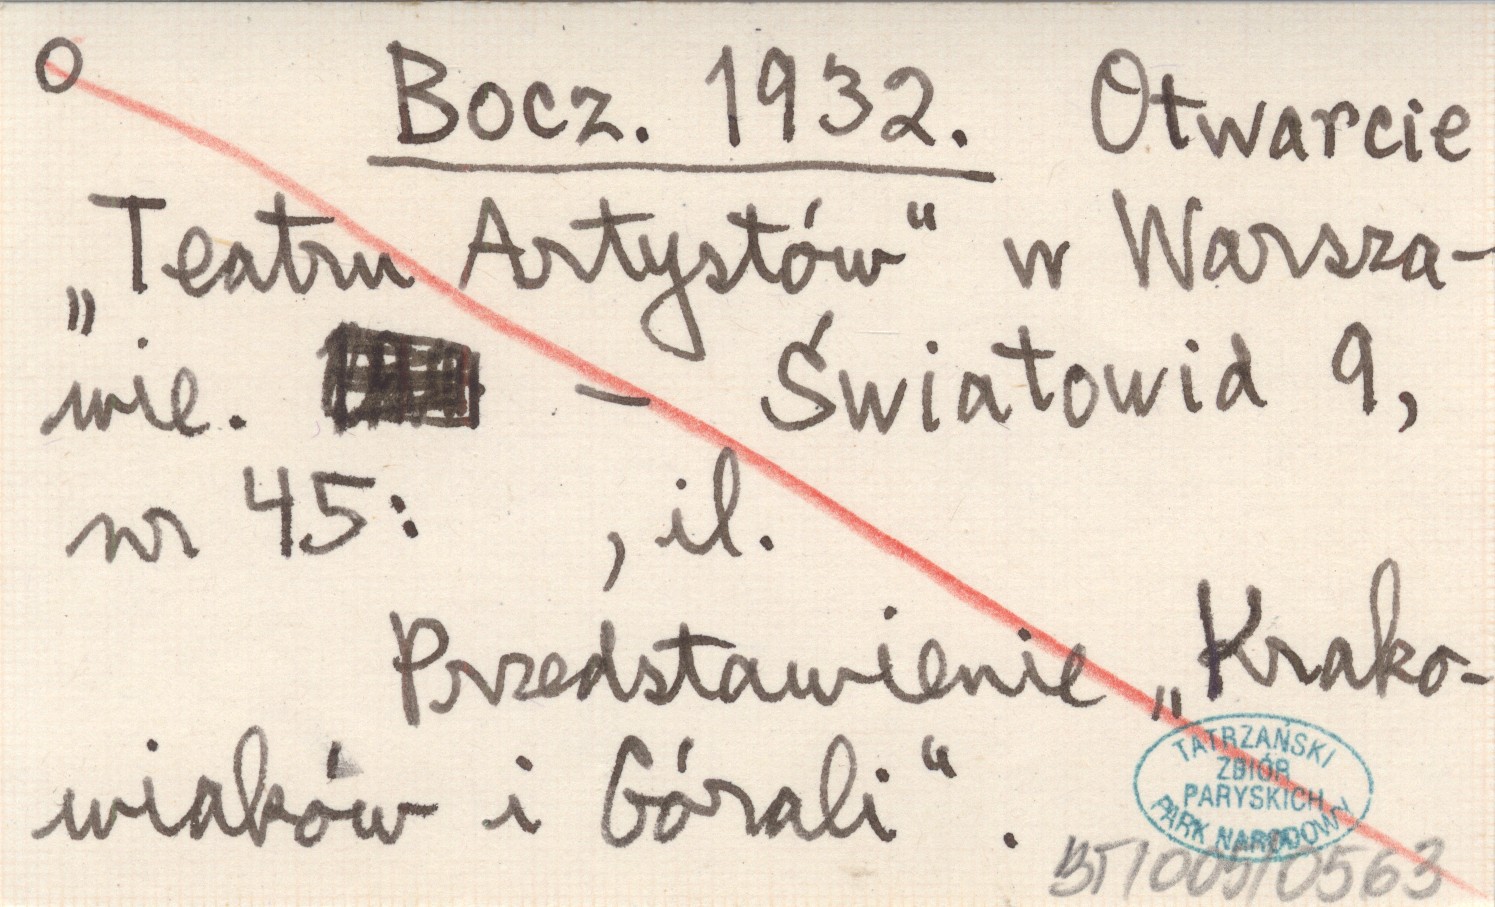 O Bocz. 1932. Otwarcie
„Teatru Artystów“ w Warsza-
wie. – Światowid 9,
nr 45: , il.
Przedstawienie „Krako-
wiaków i Górali“.
TATRZAŃSKI
ZBIÓR
PARYSKICH
PARK NARODOWY
BT/005/0563